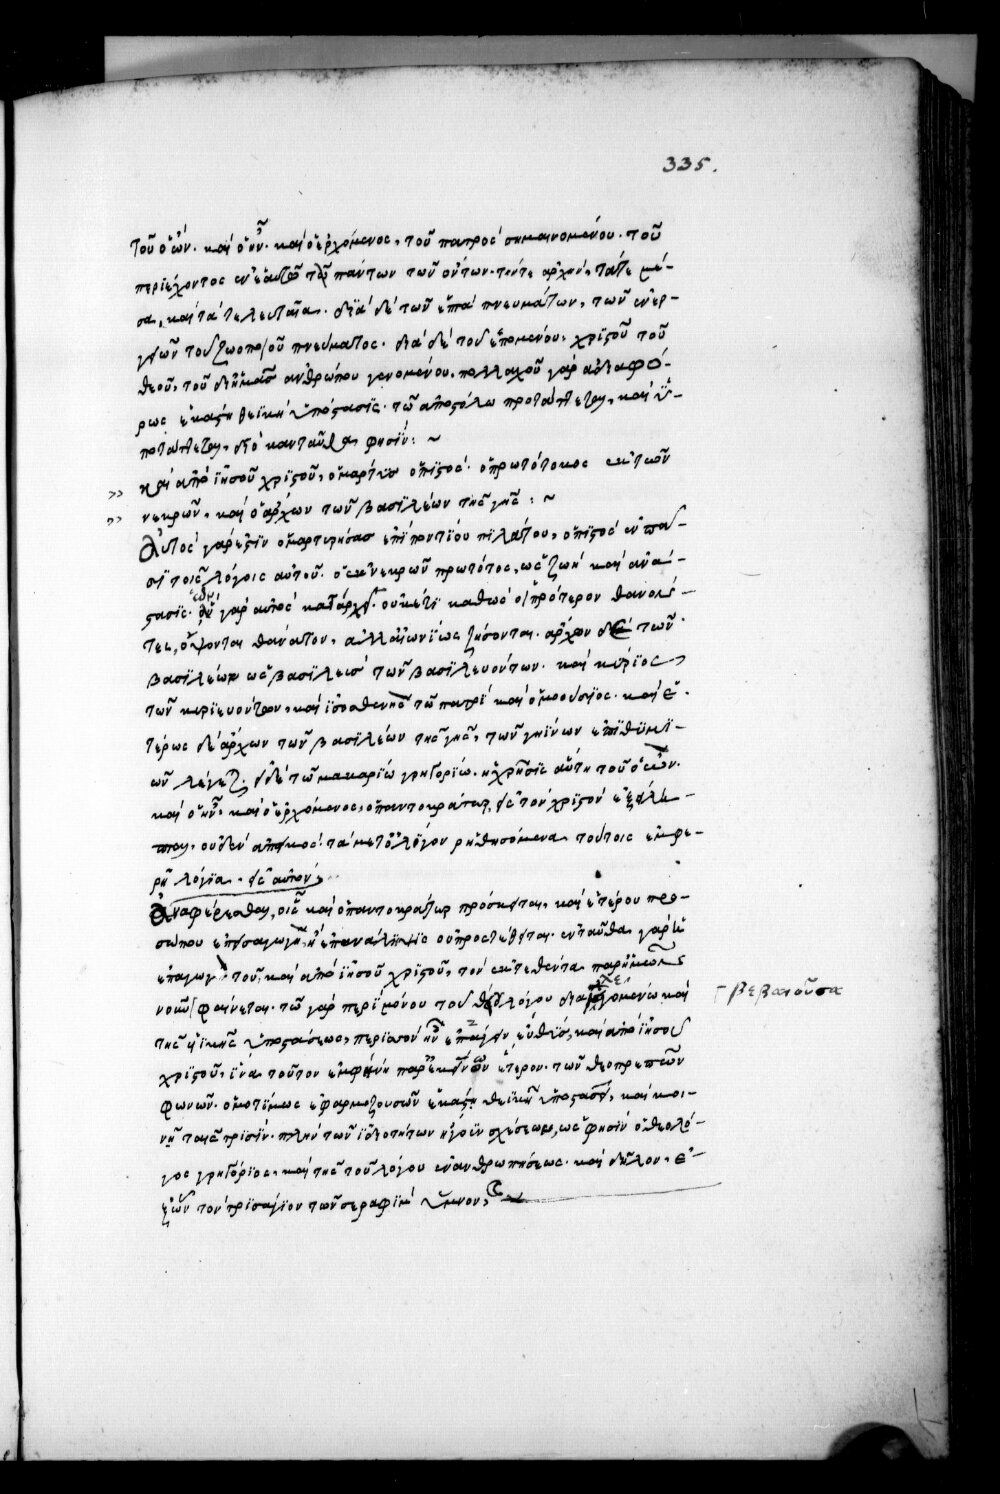 335.
τοῦ ὁ ὢν. καὶ ὁ ἦν. καὶ ὁ ἐρχόμενος, τοῦ πατρὸς σημαινομένου. τοῦ
περιέχοντος ἐν ἑαυτῷ τῶν πάντων τῶν ὄντων. τήντε ἀρχὴν, τάτε μέ-
σα, καὶ τὰ τελευταῖα. διὰ δὲ τῶν ἑπτὰ πνευμάτων, τῶν ἐνερ-
γιῶν τοῦ ζωοποιοῦ πνεύματος. διὰ δὲ τοῦ ἑπομένου, χριστοῦ τοῦ
θεοῦ, τοῦ δι ἡμᾶς ἀνθρώπου γενομένου. πολλαχοῦ γὰρ ἀδιαφό-
ρως ἑκάστη θεϊκὴ ὑπόστασις. τῷ ἀποστόλῳ προτάττεται, καὶ ὑ-
ποτάττεται, διὸ κἀνταῦθα φησίν: ~
» καὶ ἀπὸ ἰησοῦ χριστοῦ, ὁ μάρτυς ὁ πιστός. ὁ πρωτότοκος ἐκ τῶν
» νεκρῶν, καὶ ὁ ἄρχων τῶν βασιλέων τῆς γῆς: ~
Αὐτὸς γάρ ἐστιν ὁ μαρτυρήσας ἐπὶ ποντίου πιλάτου, ὁ πιστὸς ἐν πᾶ-
σι τοῖς λόγοις αὐτοῦ. ὁ ἐκ νεκρῶν πρωτότος, ὡς ζωὴ καὶ ἀνά-
στασις. γὰρ αὐτὸς κατάρχει. οὐκέτι καθὼς οἱ πρότερον θανόν-
τες, ὄψονται θάνατον, ἀλλ αἰωνίως ζήσονται. ἄρχων δὲ τῶν
βασιλέων ὡς βασιλεὺς τῶν βασιλευόντων. καὶ κύριος
τῶν κυριευόντων, καὶ ἰσοσθενὴς τῷ πατρὶ καὶ ὁμοούσιος. καὶ ἑ-
τέρως δὲ ἄρχων τῶν βασιλέων τῆς γῆς, τῶν γηΐνων ἐπιθυμι-
ῶν λέγει. τῷ μακαρίῳ γρηγορίῳ. ἡ χρῆσις αὕτη τοῦ ὁ ὢν.
καὶ ὁ ἦν. καὶ ὁ ἐρχόμενος, ὁ παντοκράτωρ, εἰς τὸν χριστὸν
οὐδὲν ἀπεικὸς. τὰ μετ ὀλίγον ῥηθησόμενα τούτοις ἐμφε-
ρῆ λόγια. εἰς αὐτὸν
Ἀναφέρεσθαι, οἷς καὶ ὁ παντοκράτωρ πρόσκειται, καὶ ἑτέρου προ-
σώπου ἐπεισαγωγὴ, ἢ ἐπανάληψις οὐ προστέθειται. ἐνταῦθα γὰρ ἡ
ἐπαγωγὴ τοῦ, καὶ ἀπὸ ἰησοῦ χριστοῦ, τὸν ἐκτεθέντα παρ ἡμῶν
νοῦν φαίνεται. τῷ γὰρ περὶ μόνου τοῦ θεοῦ λόγου διαλεγομένῳ καὶ
Γ βεβαιοῦσα
τῆς υἱικῆς ὑποστάσεως, περισσὸν ἦν ἐπάγειν εὐθὺς, καὶ ἀπὸ ἰησοῦ
χριστοῦ, ἵνα τοῦτον ἐμφήνῃ παρ ἐκεῖνον ἕτερον. τῶν θεοπρεπῶν
φωνῶν. ὁμοτίμως ἐφαρμοζουσῶν ἑκάστῃ θεϊκῇ ὑποστάσει, καὶ κοι-
νῇ ταῖς τρισὶν. πλὴν τῶν ἰδιοτήτων ἤγουν σχέσεων, ὡς φησὶν ὁ θεολό-
γος γρηγόριος, καὶ τῆς τοῦ λόγου ἐνανθρωπήσεως. καὶ δῆλον, ἐ-
ξ ὧν τὸν τρισάγιον τῶν σεραφὶμ ὕμνον,